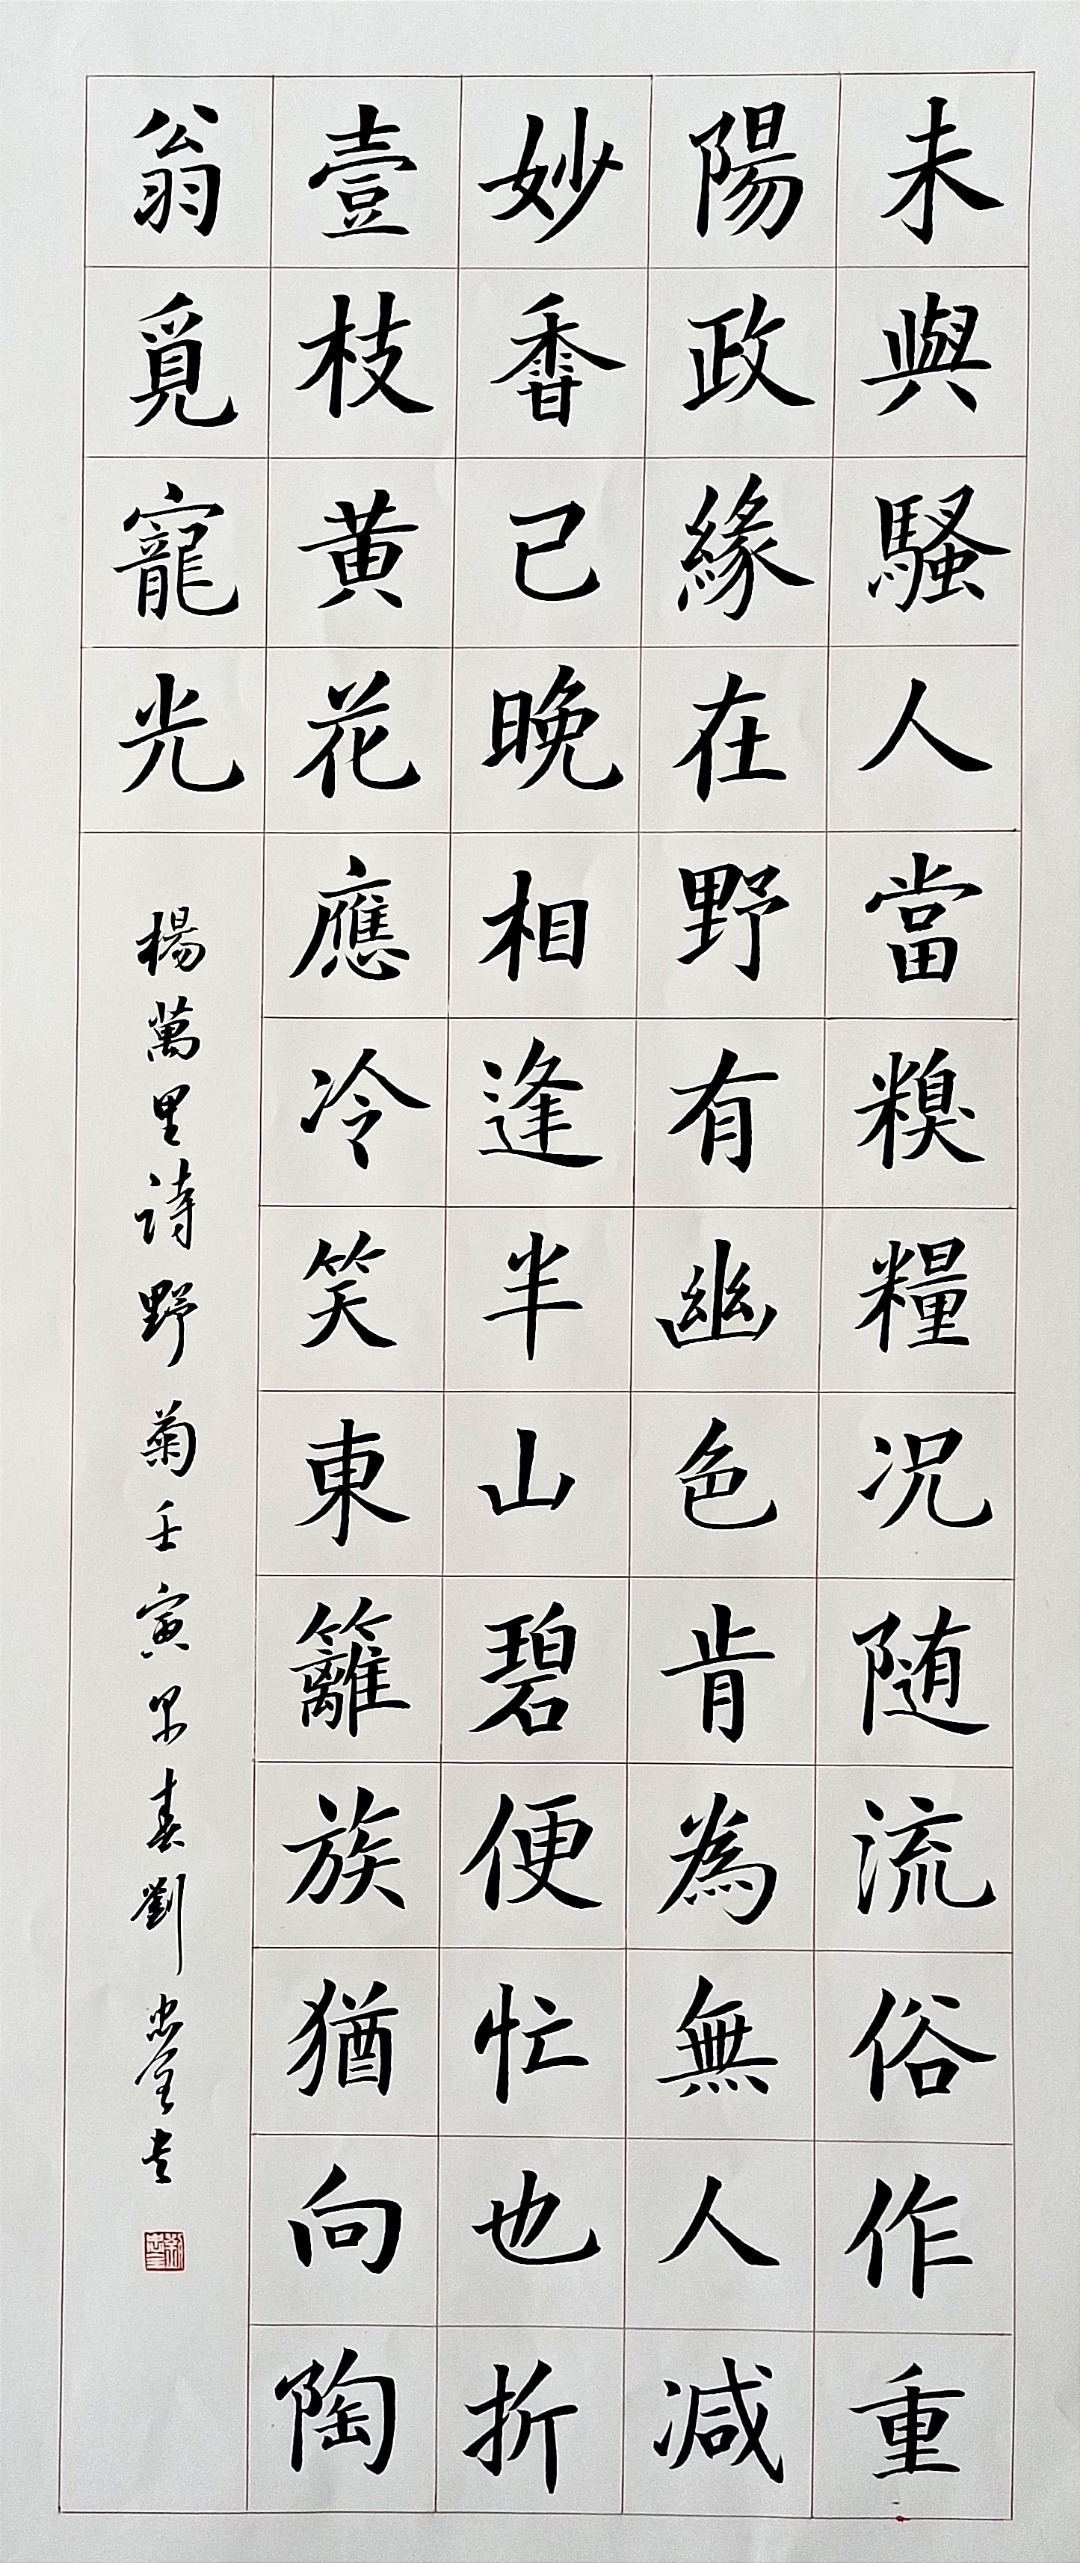 未與騷人當糗糧况随流俗作重
陽政緣在野有幽色肯為無人減
妙香已晚相逢半山碧便忙也折
壹枝黄花應冷笑東籬族猶向陶
翁覓寵光
楊萬里詩野菊壬寅早春劉忠全書